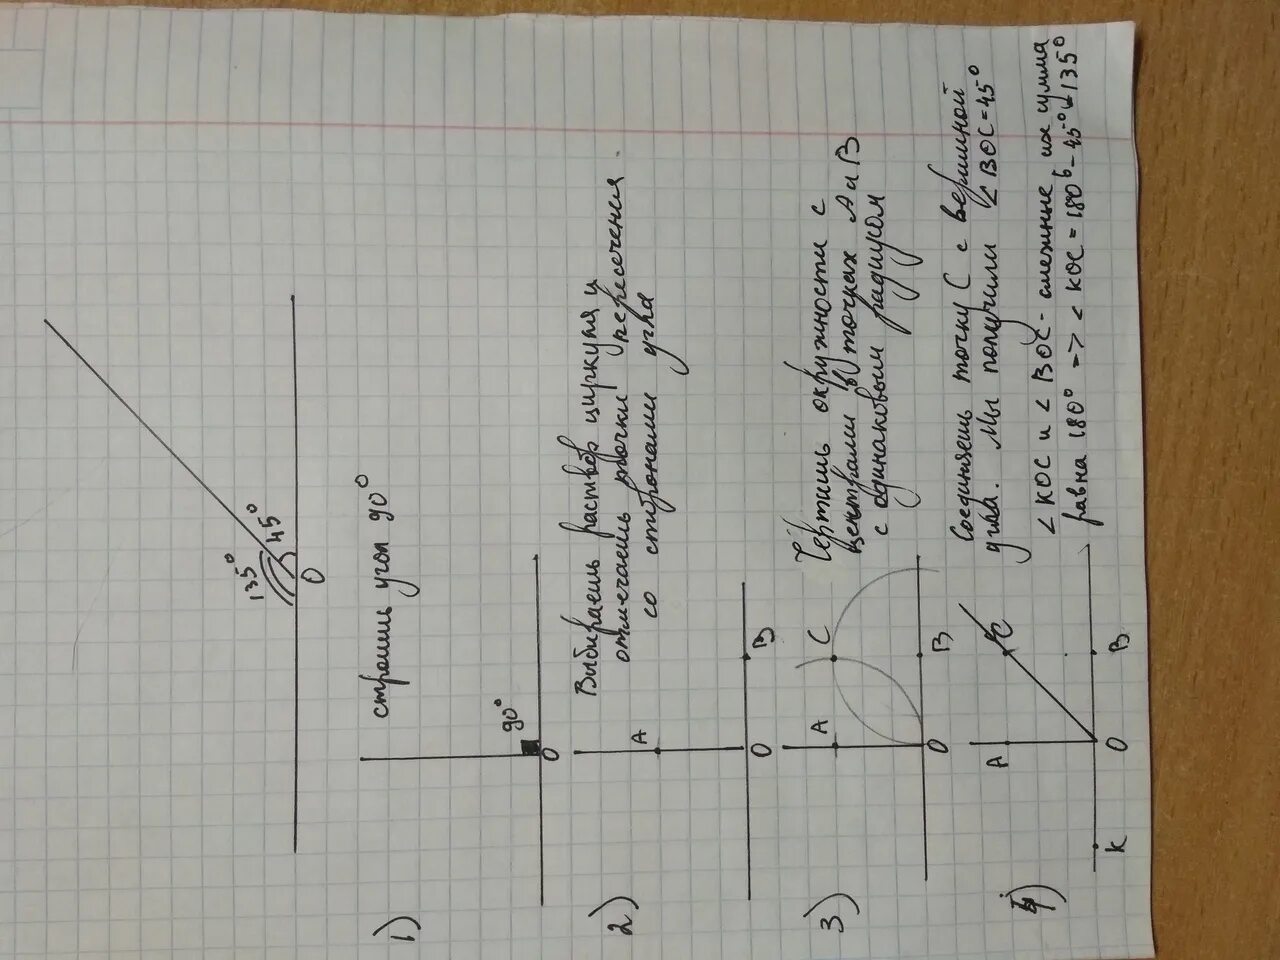 135° 45°
O
1) строишь угол 90°
90°
O
2) Выбираешь раствор циркуля и
отмечаешь точки пересечения
со сторонами угла
A
O B
3) Чертишь окружности с
центрами в точках A и B
с одинаковым радиусом
A C
O B
4) Соединяешь точку C с вершиной
угла. Мы получили ∠BOC=45°
∠KOC и ∠BOC - смежные, их сумма
равна 180° => ∠KOC = 180° - 45° = 135°
A C
K O B